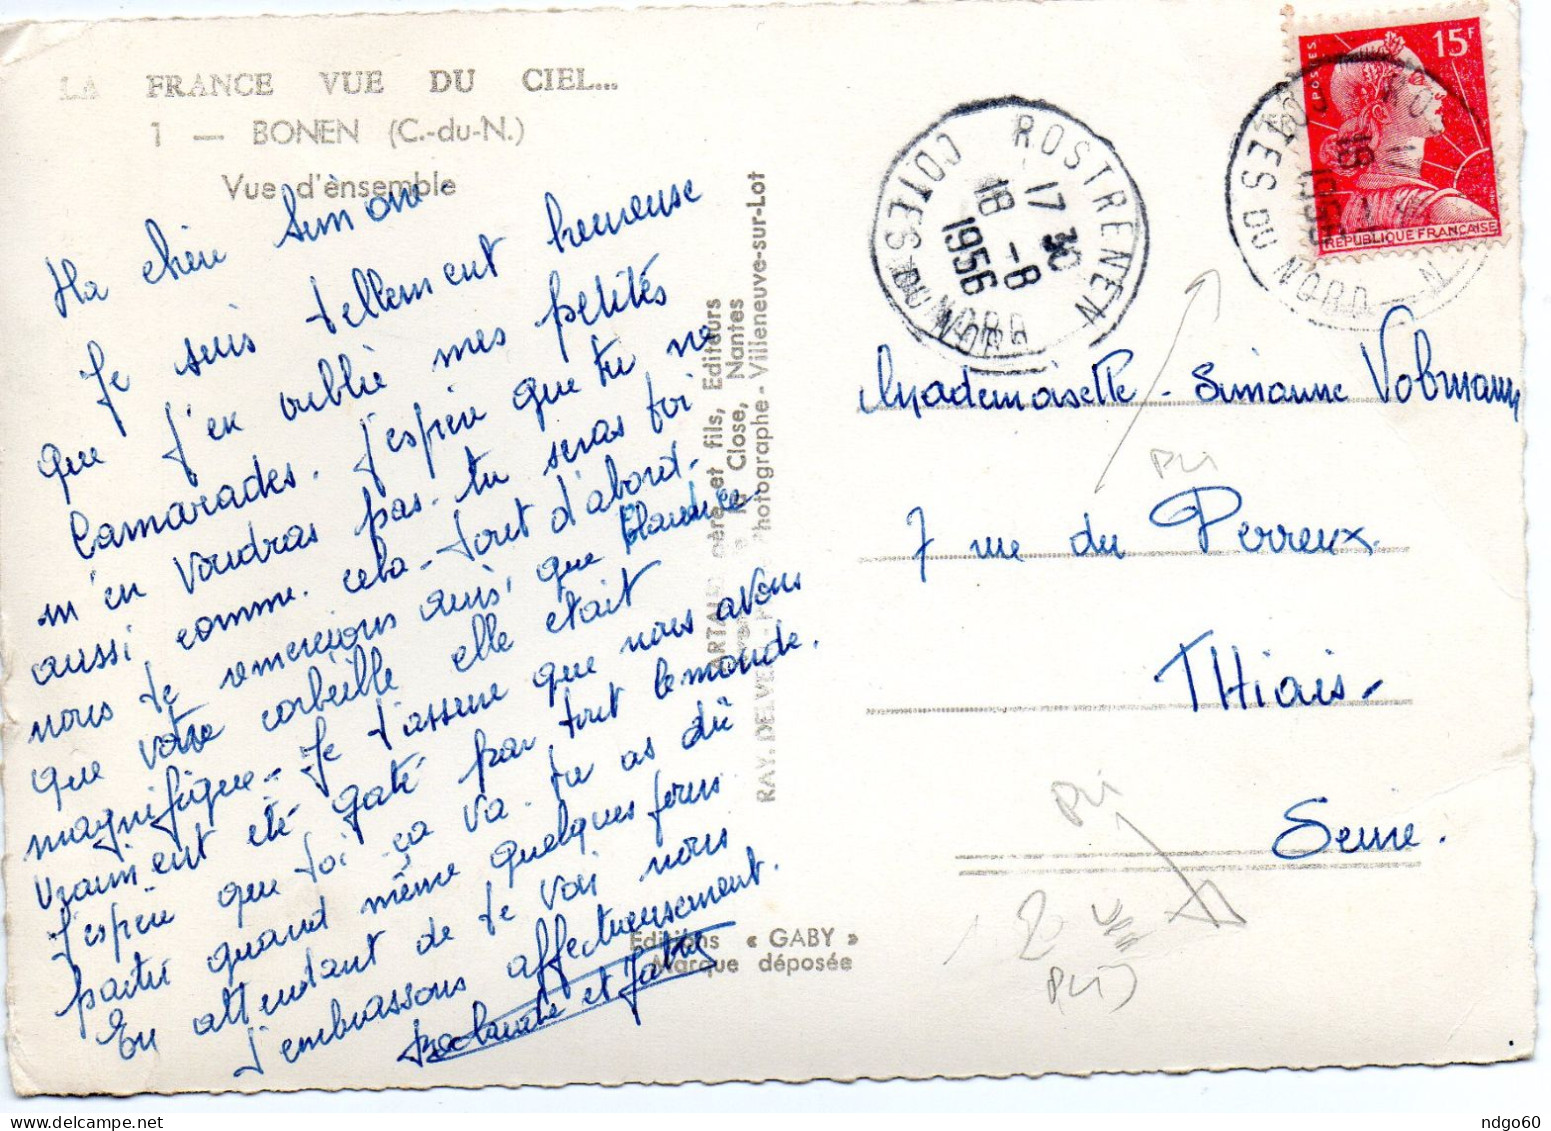 LA FRANCE VUE DU CIEL...
1 — BONEN (C.-du-N.)
Vue d'ensemble
Ma chère Simone.
Je suis tellement heureuse
que j'en oublie mes petites
Camarades. j'espère que tu ne
m'en voudras pas. tu seras foi
aussi comme cela. tout d'abord.
nous te remercions ainsi que Blandice.
que votre corbeille elle était
magnifique. Je t'assure que nous avons
vraiment été gaté par tout le monde.
J'espère que toi ça va. tu as dû
partir quand même quelques jours
En attendant de te voir nous
t'embrassons affectueusement.
et
ARTAUD père et fils, Editeurs
Close, Nantes
RAY. DELVERT - Photographe - Villeneuve-sur-Lot
Editions « GABY »
Marque déposée
ROSTRENEN
17 30
18 -8
1956
COTES DU NORD
POSTES
15F
REPUBLIQUE FRANÇAISE
COTES DU NORD
Mademoiselle - Simonne Vobmann
7 rue du Perreux.
THiais -
Seine.
PLi
PLi
PLi
ndgo60